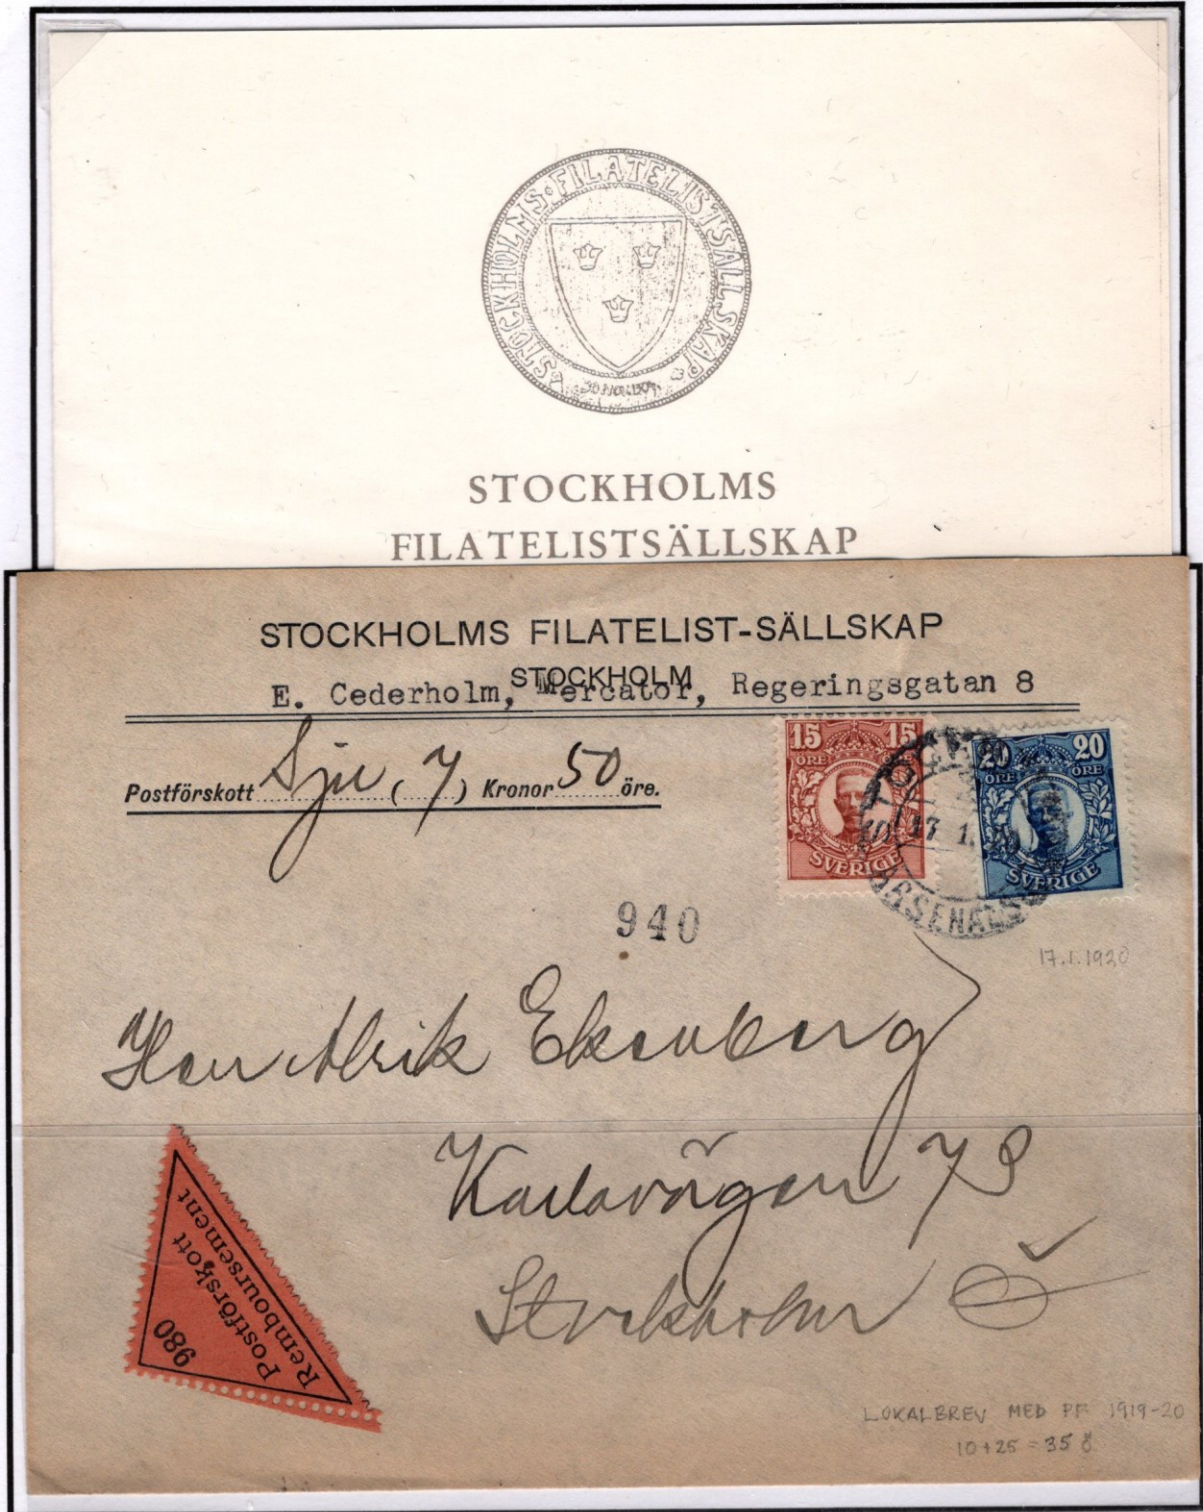 STOCKHOLMS FILATELISTSÄLLSKAP
STOCKHOLMS
FILATELISTSÄLLSKAP
STOCKHOLMS FILATELIST-SÄLLSKAP
STOCKHOLM
E. Cederholm, Mercator, Regeringsgatan 8
Postförskott Sju (7) Kronor 50 öre.
15 15
ÖRE ÖRE
SVERIGE
20 20
ÖRE ÖRE
SVERIGE
17 1. 20
940
17.1.1920
Herr Alrik Ekenberg
Karlavägen 73
Stockholm Ö
Remboursement
Postförskott
980
LOKALBREV MED PF 1919-20
10+25=35 Ö